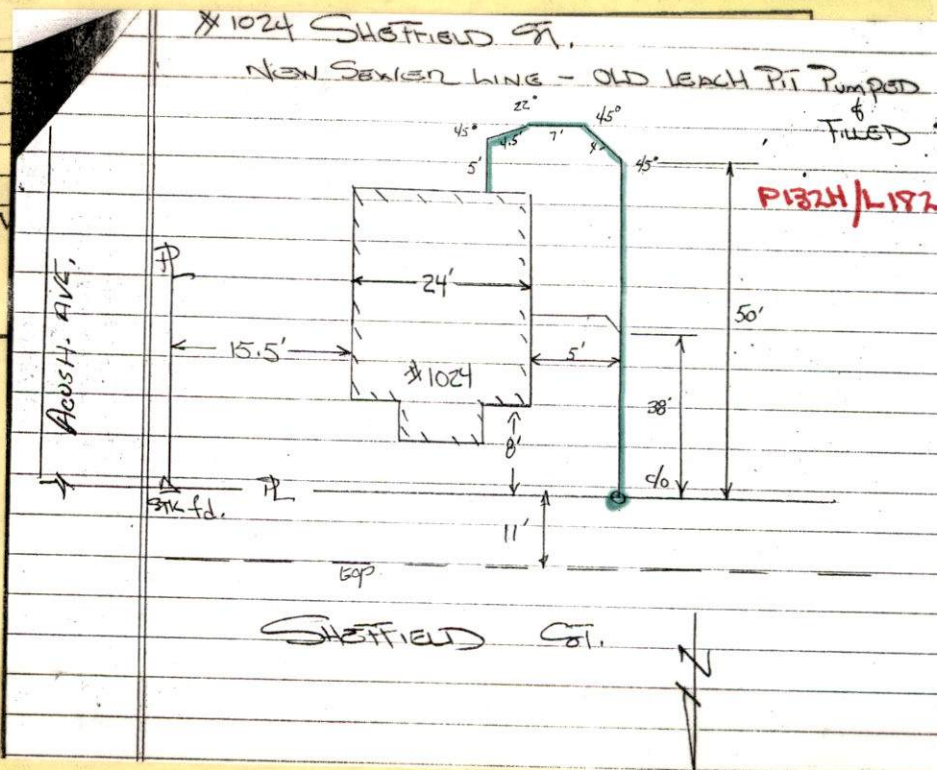 #1024 SHEFFIELD ST.
NEW SEWER LINE - OLD LEACH PIT PUMPED
&
FILLED
22°
45°
45°
4.5'
7'
4'
5'
45°
P132H/L182
ACUSH. AVE.
PL
24'
50'
15.5'
5'
#1024
38'
8'
c/o
STK fd.
PL
11'
EOP
SHEFFIELD ST.
N